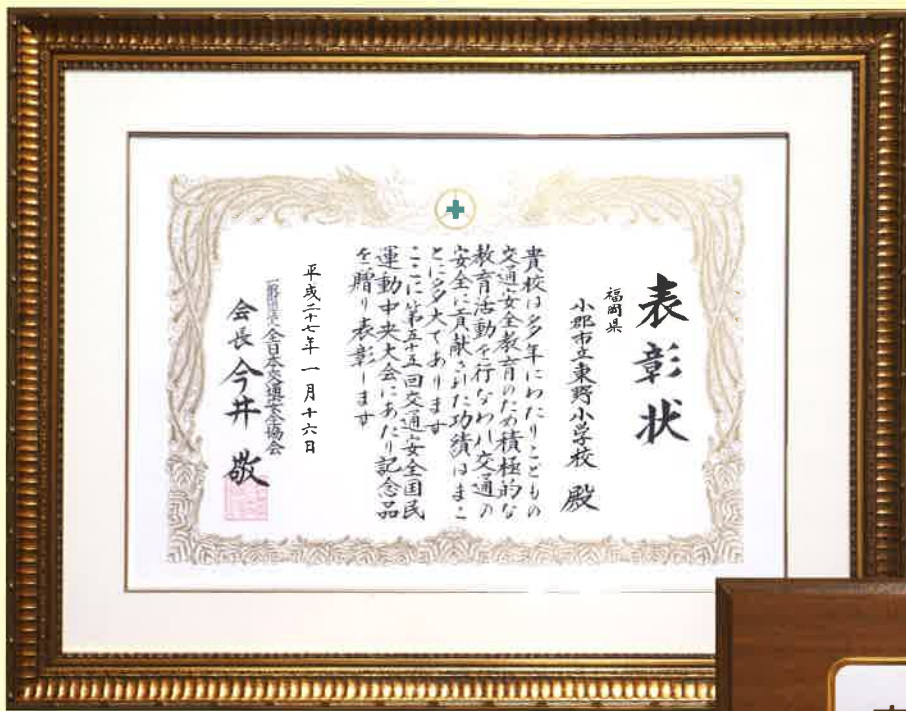 表彰状
福岡県
小郡市立東野小学校 殿
貴校は多年にわたりこどもの
交通安全教育のため積極的な
教育活動を行なわれ交通の
安全に貢献された功績はまこ
とに多大であります
ここに第五十五回交通安全国民
運動中央大会にあたり記念品
を贈り表彰します
平成二十七年一月十六日
一般財団法人全日本交通安全協会
会長 今井 敬